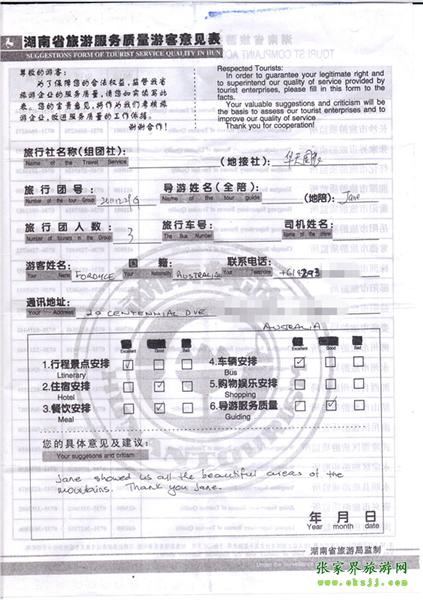 湖南省旅游服务质量游客意见表
SUGGESTIONS FORM OF TOURIST SERVICE QUALITY IN HUN
尊敬的游客:
为了保障您的合法权益,监督我省
旅游企业的服务质量,请您如实填写此
表。您的宝贵意见,将作为我们考核旅
游企业、改进服务质量的工作依据。
谢谢合作!
Respected Tourists:
In order to guarantee your legitimate right and
to superintend our quality of service provided by
tourist enterprises, please fill in this form to the
facts.
Your valuable suggestions and criticism will be
the basis to assess our tourist enterprises and to
improve our quality of service
Thank you for cooperation!
旅行社名称(组团社): (地接社):
Name of the Travel Service
旅行团号: 导游姓名(全陪): (地陪): Jane
Number of the tour Group Name of the tour guide
旅行团人数: 3 旅行车号: 司机姓名:
Number of tourists in the Group The Bus Number
游客姓名: FORDYCE 国籍: AUSTRALIA 联系电话:
Your Name Your Nationality Your Telephone
通讯地址: 20 CENTENNIAL DVE
Your Address
AUSTRALIA
Excellent Good Bad
1.行程景点安排 ☑ ☐ ☐ 4.车辆安排 ☑ ☐ ☐
Ltinerary Bus
2.住宿安排 ☐ ☑ ☐ 5.购物娱乐安排 ☐ ☐ ☐
Hotel Shopping
3.餐饮安排 ☐ ☑ ☐ 6.导游服务质量 ☐ ☑ ☐
Meal Guiding
您的具体意见及建议:
Your suggestions and critism
Jane showed us all the beautiful areas of the
mountains. Thank you Jane.
年 月 日
Year month date
湖南省旅游局监制
Under the Surveillance
张家界旅游网
www.okzjj.com